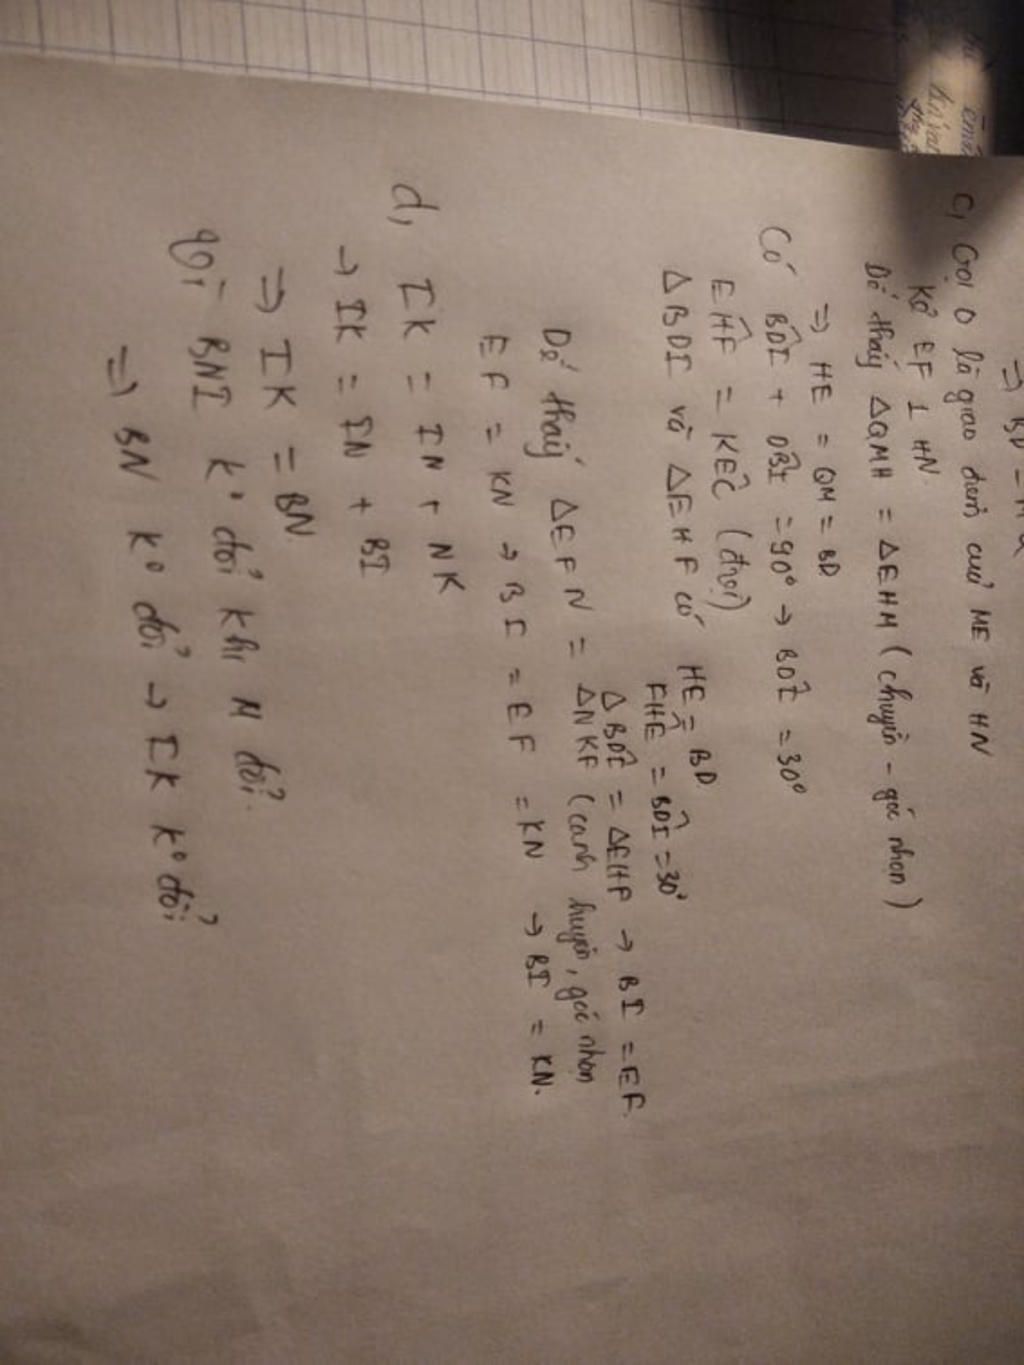 ⇒ BD = MQ
c, Gọi O là giao điểm cuả ME và HN
Kẻ EF ⊥ HN
Dễ thấy ΔQMH = ΔEHM (chuyền - góc nhọn)
⇒ HE = QM = BD
Có BD̂I + DB̂I = 90° → BD̂I = 30°
EĤF = KÊC (đvị)
ΔBDI và ΔEHF có HE = BD
FĤE = BD̂I = 30°
ΔBDI = ΔEHF → BI = EF.
Dễ thấy ΔEFN = ΔNKF (canh huyền, góc nhon
EF = KN → BI = EF = KN → BI = KN.
d, IK = IN + NK
→ IK = IN + BI
⇒ IK = BN
Vì BNI k° đổi khi M đổi.
⇒ BN k° đổi → IK k° đổi